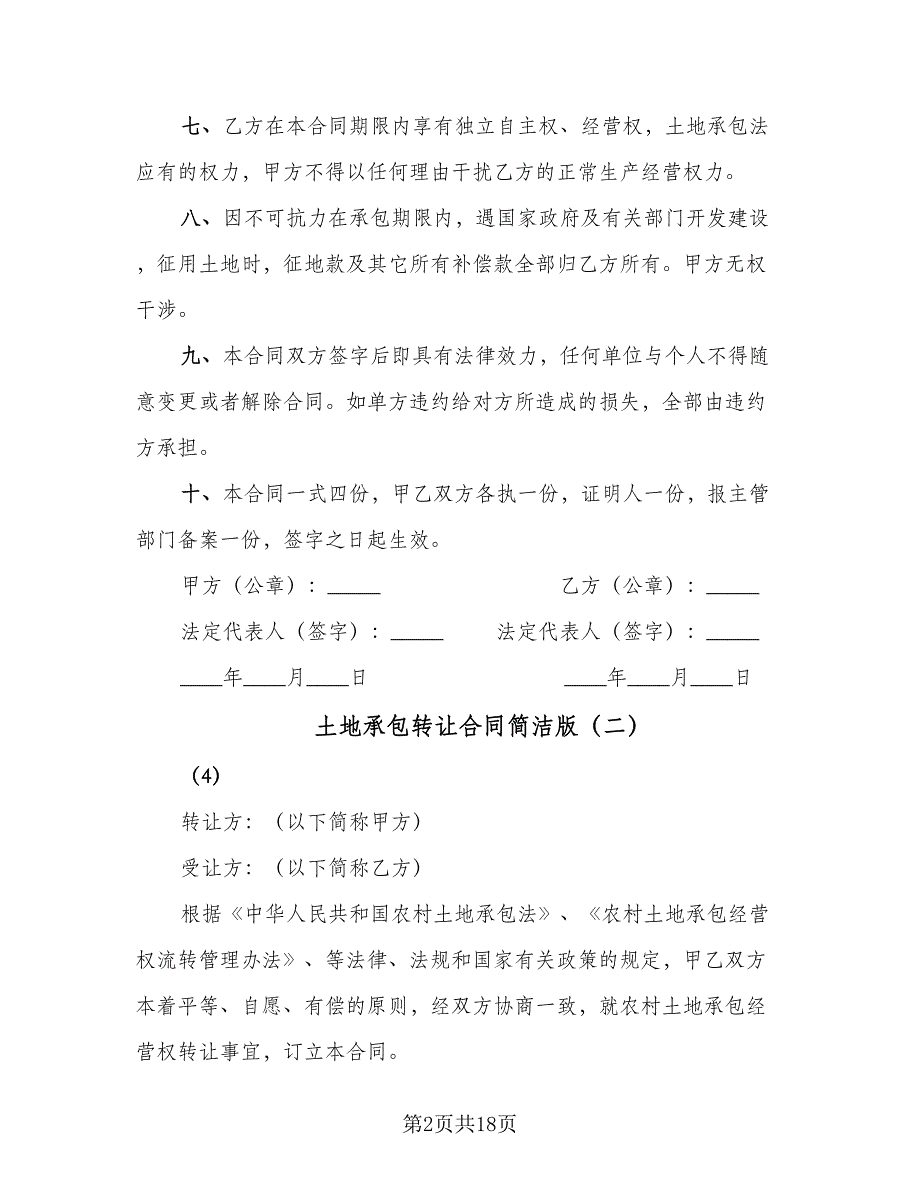 七、乙方在本合同期限内享有独立自主权、经营权，土地承包法
应有的权力，甲方不得以任何理由干扰乙方的正常生产经营权力。
八、因不可抗力在承包期限内，遇国家政府及有关部门开发建设
，征用土地时，征地款及其它所有补偿款全部归乙方所有。甲方无权
干涉。
九、本合同双方签字后即具有法律效力，任何单位与个人不得随
意变更或者解除合同。如单方违约给对方所造成的损失，全部由违约
方承担。
十、本合同一式四份，甲乙双方各执一份，证明人一份，报主管
部门备案一份，签字之日起生效。
甲方（公章）：_____ 乙方（公章）：_____
法定代表人（签字）：_____ 法定代表人（签字）：_____
____年____月____日 ____年____月____日
土地承包转让合同简洁版（二）
（4）
转让方：（以下简称甲方）
受让方：（以下简称乙方）
根据《中华人民共和国农村土地承包法》、《农村土地承包经营
权流转管理办法》、等法律、法规和国家有关政策的规定，甲乙双方
本着平等、自愿、有偿的原则，经双方协商一致，就农村土地承包经
营权转让事宜，订立本合同。
第2页共18页